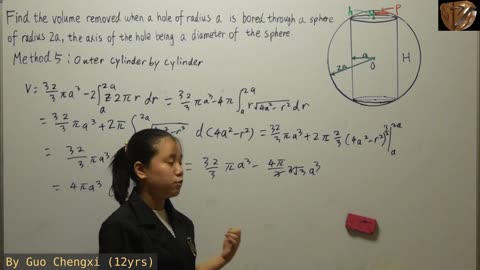 Find the volume removed when a hole of radius a is bored through a sphere
of radius 2a, the axis of the hole being a diameter of the sphere.
Method 5 : Outer cylinder by cylinder
V = 32/3 πa³ - 2∫ₐ²ᵃ z 2πr dr = 32/3 πa³ - 4π∫ₐ²ᵃ r√(4a²-r²) dr
= 32/3 πa³ + 2π∫ d(4a²-r²) = 32/3 πa³ + 2π 2/3 (4a²-r²)
= 32/3 πa³ = 32/3 πa³ - 4π
= 4πa³
a
2a
O
H
By Guo Chengxi (12yrs)